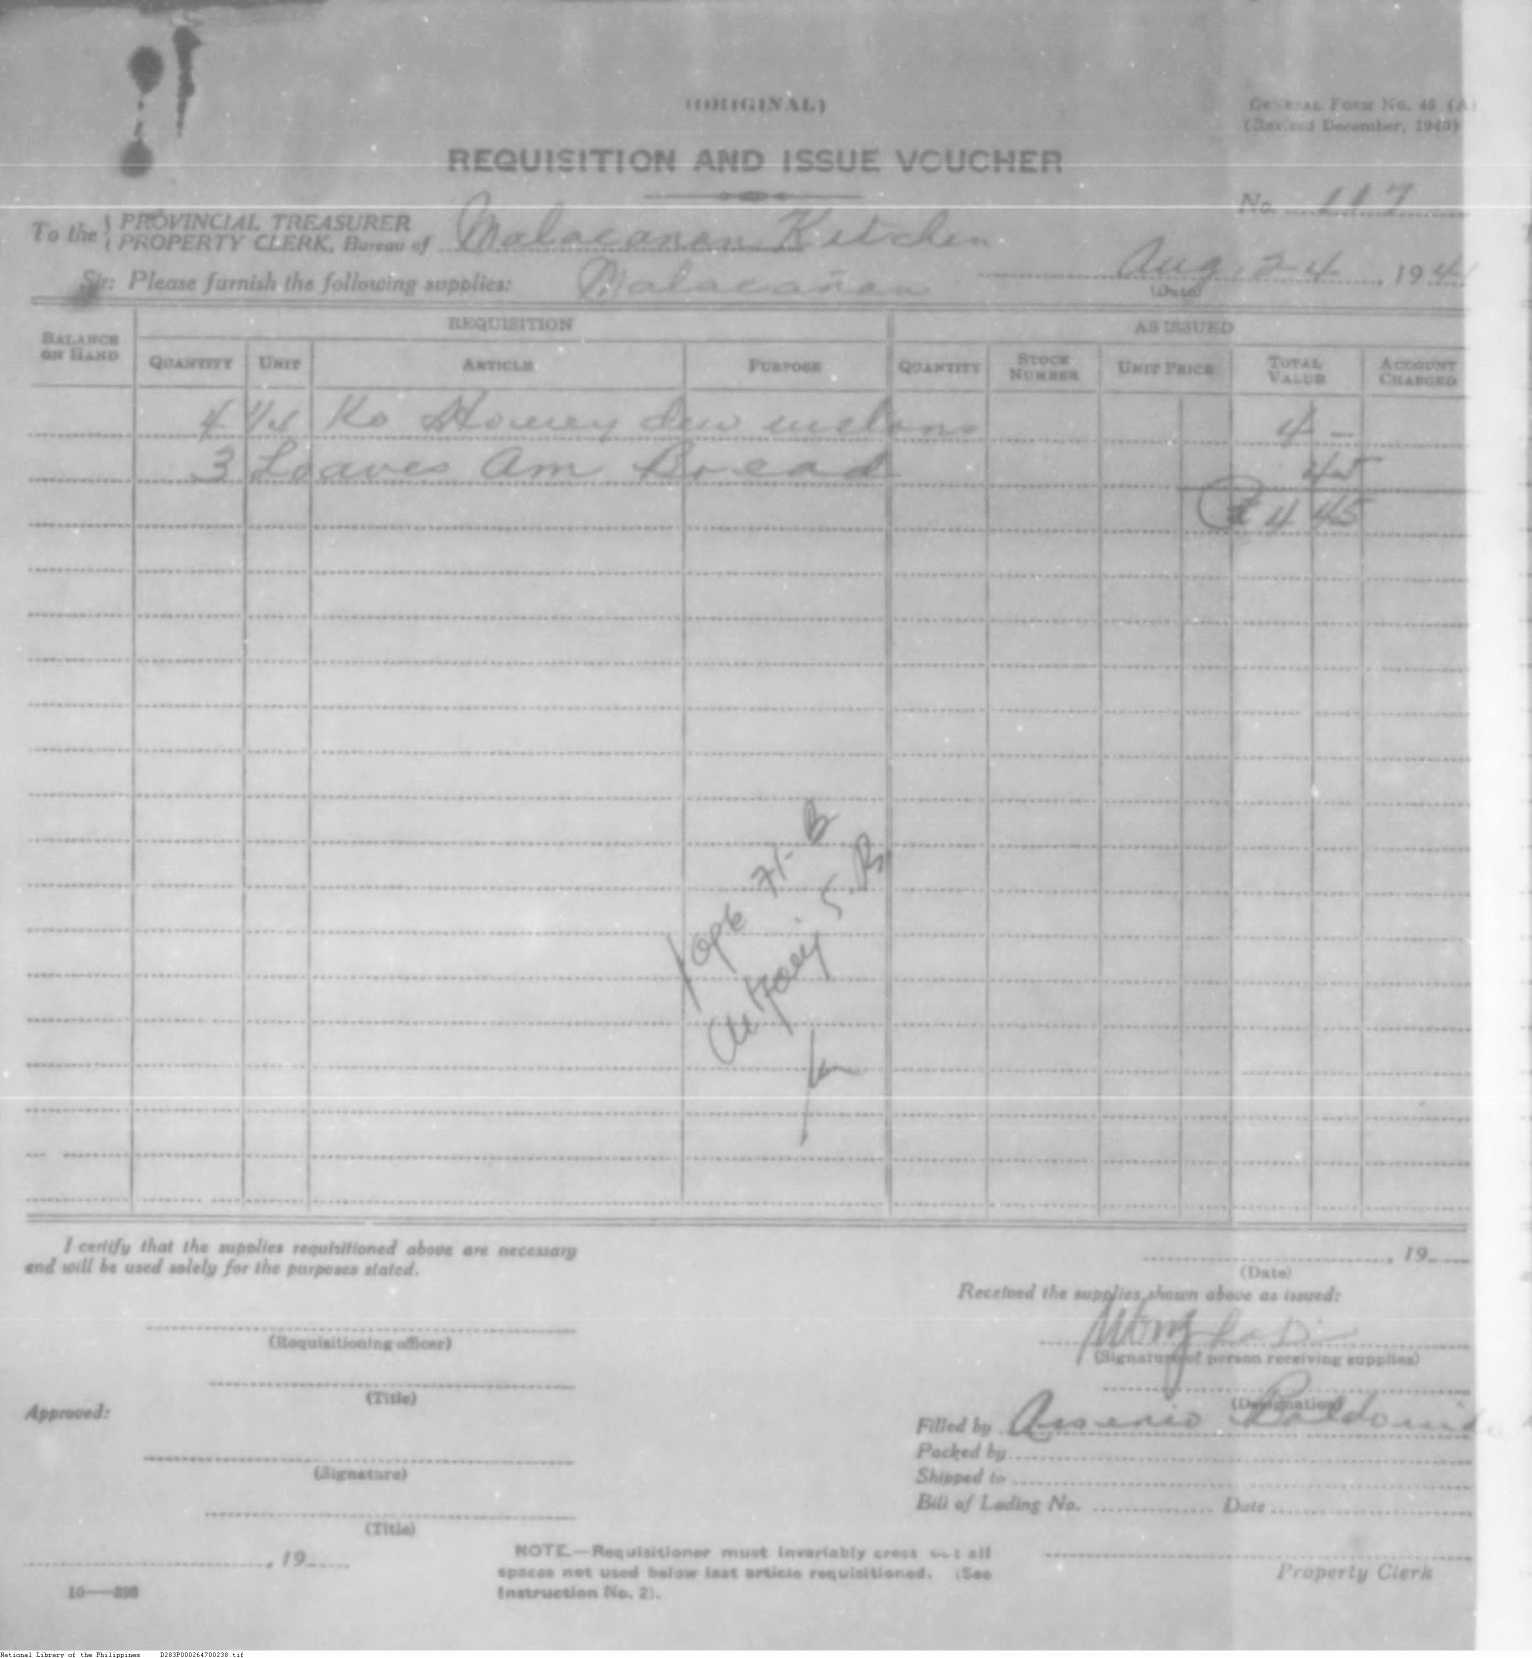 (ORIGINAL)
GENERAL FORM No. 45 (A)
(Revised December, 1940)
REQUISITION AND ISSUE VOUCHER
No. 117
To the { PROVINCIAL TREASURER
PROPERTY CLERK, Bureau of Malacañan Kitchen
Sir: Please furnish the following supplies: Malacañan Aug. 24, 194
(Date)
REQUISITION AS ISSUED
BALANCE ON HAND QUANTITY UNIT ARTICLE PURPOSE QUANTITY STOCK NUMBER UNIT PRICE TOTAL VALUE ACCOUNT CHARGED
4 Ko Honey dew melons 4 —
3 Loaves Am Bread 45
₱ 4 45
I certify that the supplies requisitioned above are necessary
and will be used solely for the purposes stated.
, 19
(Date)
Received the supplies shown above as issued:
(Requisitioning officer)
(Signature of person receiving supplies)
(Title)
(Designation)
Approved:
Filled by Arsenio
Packed by
(Signature)
Shipped to
Bill of Lading No. Date
(Title)
, 19
NOTE.—Requisitioner must invariably cross out all
spaces not used below last article requisitioned. (See
Instruction No. 2).
Property Clerk
National Library of the Philippines D283P000264700238.tif